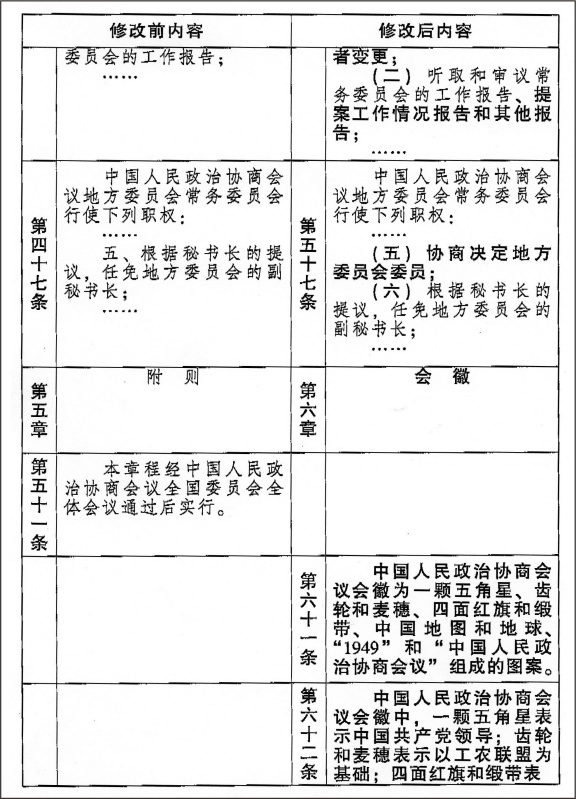 修改前内容
修改后内容
委员会的工作报告；
……
者变更；
（二）听取和审议常
务委员会的工作报告、提
案工作情况报告和其他报
告；
……
第四十七条
中国人民政治协商会
议地方委员会常务委员会
行使下列职权：
……
五、根据秘书长的提
议，任免地方委员会的副
秘书长；
……
第五十七条
中国人民政治协商会
议地方委员会常务委员会
行使下列职权：
……
（五）协商决定地方
委员会委员；
（六）根据秘书长的
提议，任免地方委员会的
副秘书长；
……
第五章
附 则
第六章
会 徽
第五十一条
本章程经中国人民政
治协商会议全国委员会全
体会议通过后实行。
第六十一条
中国人民政治协商会
议会徽为一颗五角星、齿
轮和麦穗、四面红旗和缎
带、中国地图和地球、
“1949”和“中国人民政
治协商会议”组成的图案。
第六十二条
中国人民政治协商会
议会徽中，一颗五角星表
示中国共产党领导；齿轮
和麦穗表示以工农联盟为
基础；四面红旗和缎带表